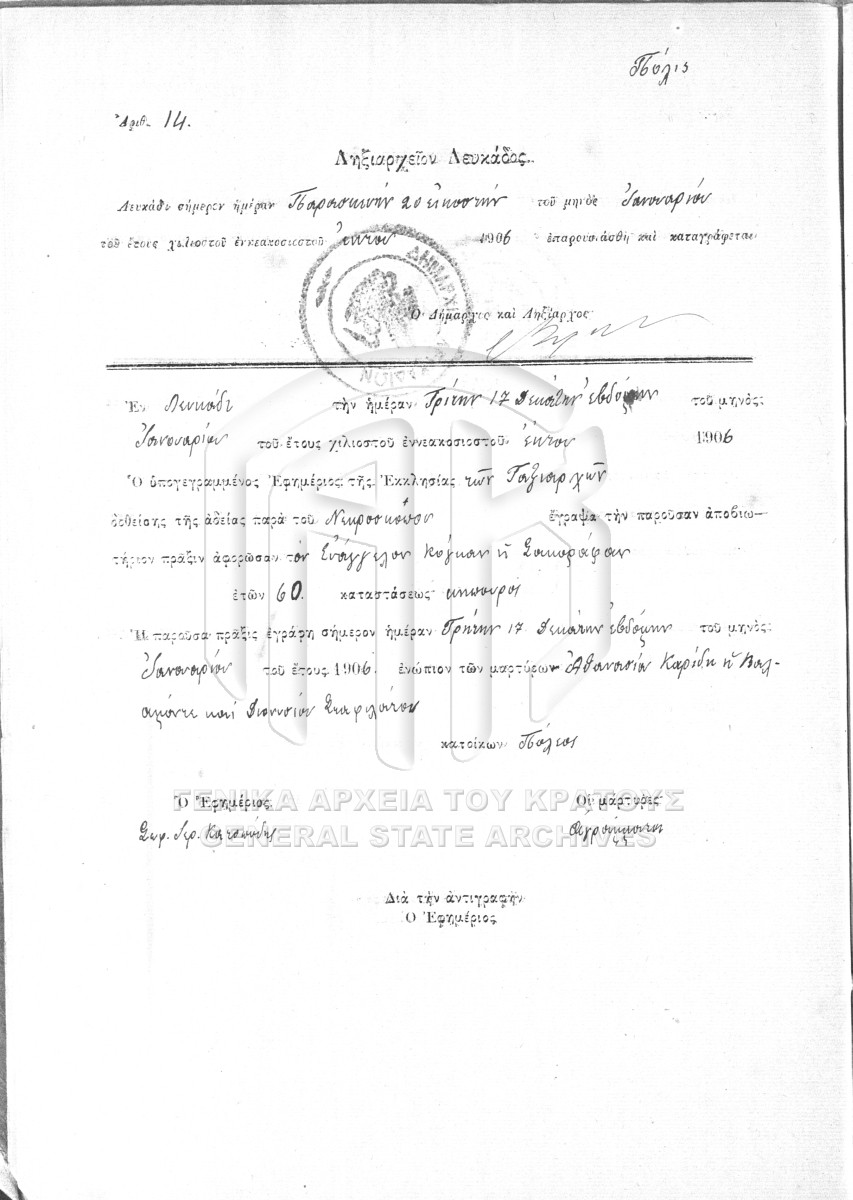 Πόλις
Ἀριθ. 14.
Ληξιαρχεῖον Λευκάδος.
Λευκάδι σήμερον ἡμέραν Παρασκευήν 20 εἰκοστήν τοῦ μηνὸς Ἰανουαρίου
τοῦ ἔτους χιλιοστοῦ ἐννεακοσιοστοῦ ἕκτου 1906 ἐπαρουσιάσθη καὶ καταγράφεται
ΔΗΜΑΡΧΙ
Ὁ Δήμαρχος καὶ Ληξίαρχος
Ἐν Λευκάδι τὴν ἡμέραν Τρίτην 17 Δεκάτην ἑβδόμην τοῦ μηνὸς
Ἰανουαρίου τοῦ ἔτους χιλιοστοῦ ἐννεακοσιοστοῦ ἕκτου 1906
Ὁ ὑπογεγραμμένος Ἐφημέριος τῆς Ἐκκλησίας τῶν Ταξιαρχῶν
δοθείσης τῆς ἀδείας παρὰ τοῦ Νεκροσκόπου ἔγραψα τὴν παροῦσαν ἀποβιω-
τήριον πρᾶξιν ἀφορῶσαν τὸν Εὐάγγελον ἢ
ἐτῶν 60. καταστάσεως κηπουρός
Ἡ παροῦσα πρᾶξις ἐγράφη σήμερον ἡμέραν Τρήτην 17 Δεκάτην ἑβδόμην τοῦ μηνὸς
Ἰανουαρίου τοῦ ἔτους 1906 ἐνώπιον τῶν μαρτύρων Ἀθανασίου Καρίδη ἢ Βαλ-
καὶ Διονυσίου
κατοίκων Πόλεως
ΓΕΝΙΚΑ ΑΡΧΕΙΑ ΤΟΥ ΚΡΑΤΟΥΣ
Ὁ Ἐφημέριος Οἱ μάρτυρες
GENERAL STATE ARCHIVES
Διὰ τὴν ἀντιγραφὴν
Ὁ Ἐφημέριος